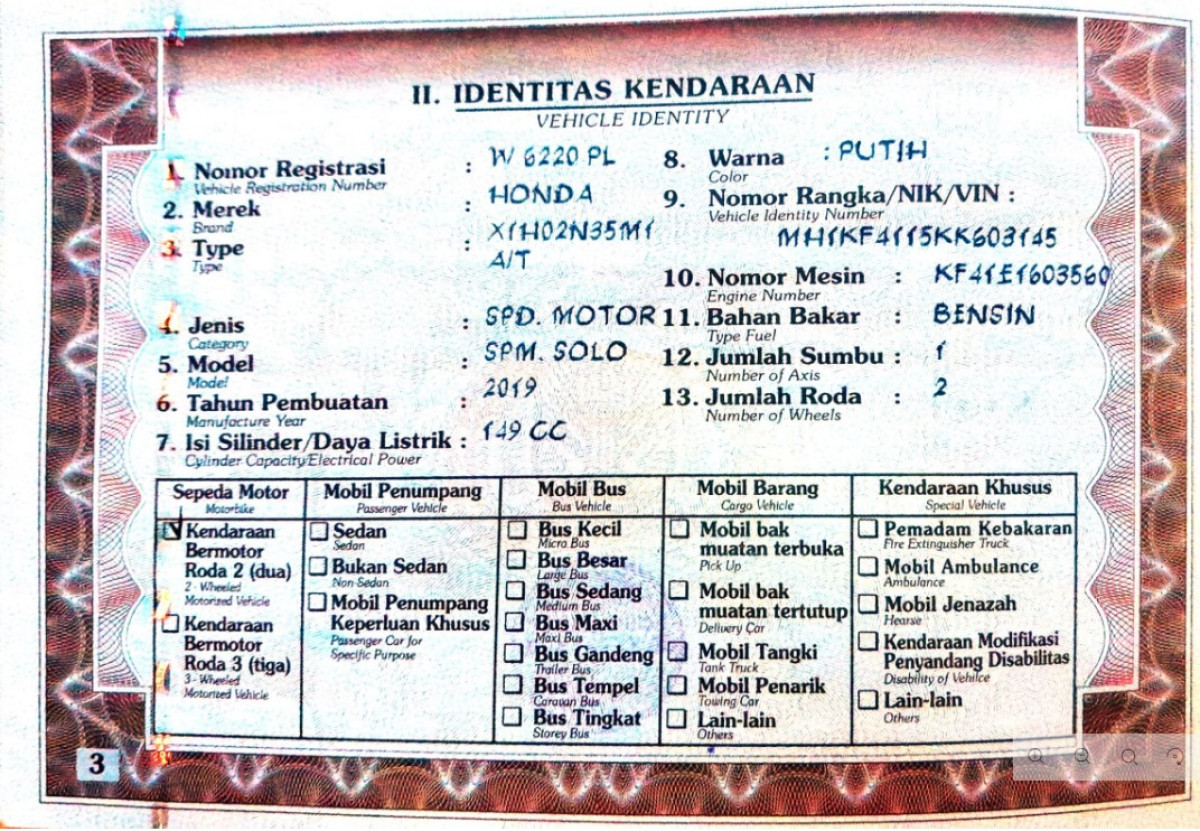 II. IDENTITAS KENDARAAN
VEHICLE IDENTITY
1. Nomor Registrasi : W 6220 PL
Vehicle Registration Number
2. Merek : HONDA
Brand
3. Type : X1H02N35M1
Type
A/T
4. Jenis : SPD. MOTOR
Category
5. Model : SPM. SOLO
Model
6. Tahun Pembuatan : 2019
Manufacture Year
7. Isi Silinder/Daya Listrik : 149 CC
Cylinder Capacity/Electrical Power
8. Warna : PUTIH
Color
9. Nomor Rangka/NIK/VIN :
Vehicle Identity Number
MH1KF4115KK603145
10. Nomor Mesin : KF41E1603560
Engine Number
11. Bahan Bakar : BENSIN
Type Fuel
12. Jumlah Sumbu : 1
Number of Axis
13. Jumlah Roda : 2
Number of Wheels
Sepeda Motor
Motorbike
Kendaraan
Bermotor
Roda 2 (dua)
2 - Wheeled
Motorized Vehicle
Kendaraan
Bermotor
Roda 3 (tiga)
3 - Wheeled
Motorized Vehicle
Mobil Penumpang
Passenger Vehicle
Sedan
Sedan
Bukan Sedan
Non-Sedan
Mobil Penumpang
Keperluan Khusus
Passenger Car for
Specific Purpose
Mobil Bus
Bus Vehicle
Bus Kecil
Micro Bus
Bus Besar
Large Bus
Bus Sedang
Medium Bus
Bus Maxi
Maxi Bus
Bus Gandeng
Trailer Bus
Bus Tempel
Caravan Bus
Bus Tingkat
Storey Bus
Mobil Barang
Cargo Vehicle
Mobil bak
muatan terbuka
Pick Up
Mobil bak
muatan tertutup
Delivery Car
Mobil Tangki
Tank Truck
Mobil Penarik
Towing Car
Lain-lain
Others
Kendaraan Khusus
Special Vehicle
Pemadam Kebakaran
Fire Extinguisher Truck
Mobil Ambulance
Ambulance
Mobil Jenazah
Hearse
Kendaraan Modifikasi
Penyandang Disabilitas
Disability of Vehilce
Lain-lain
Others
3